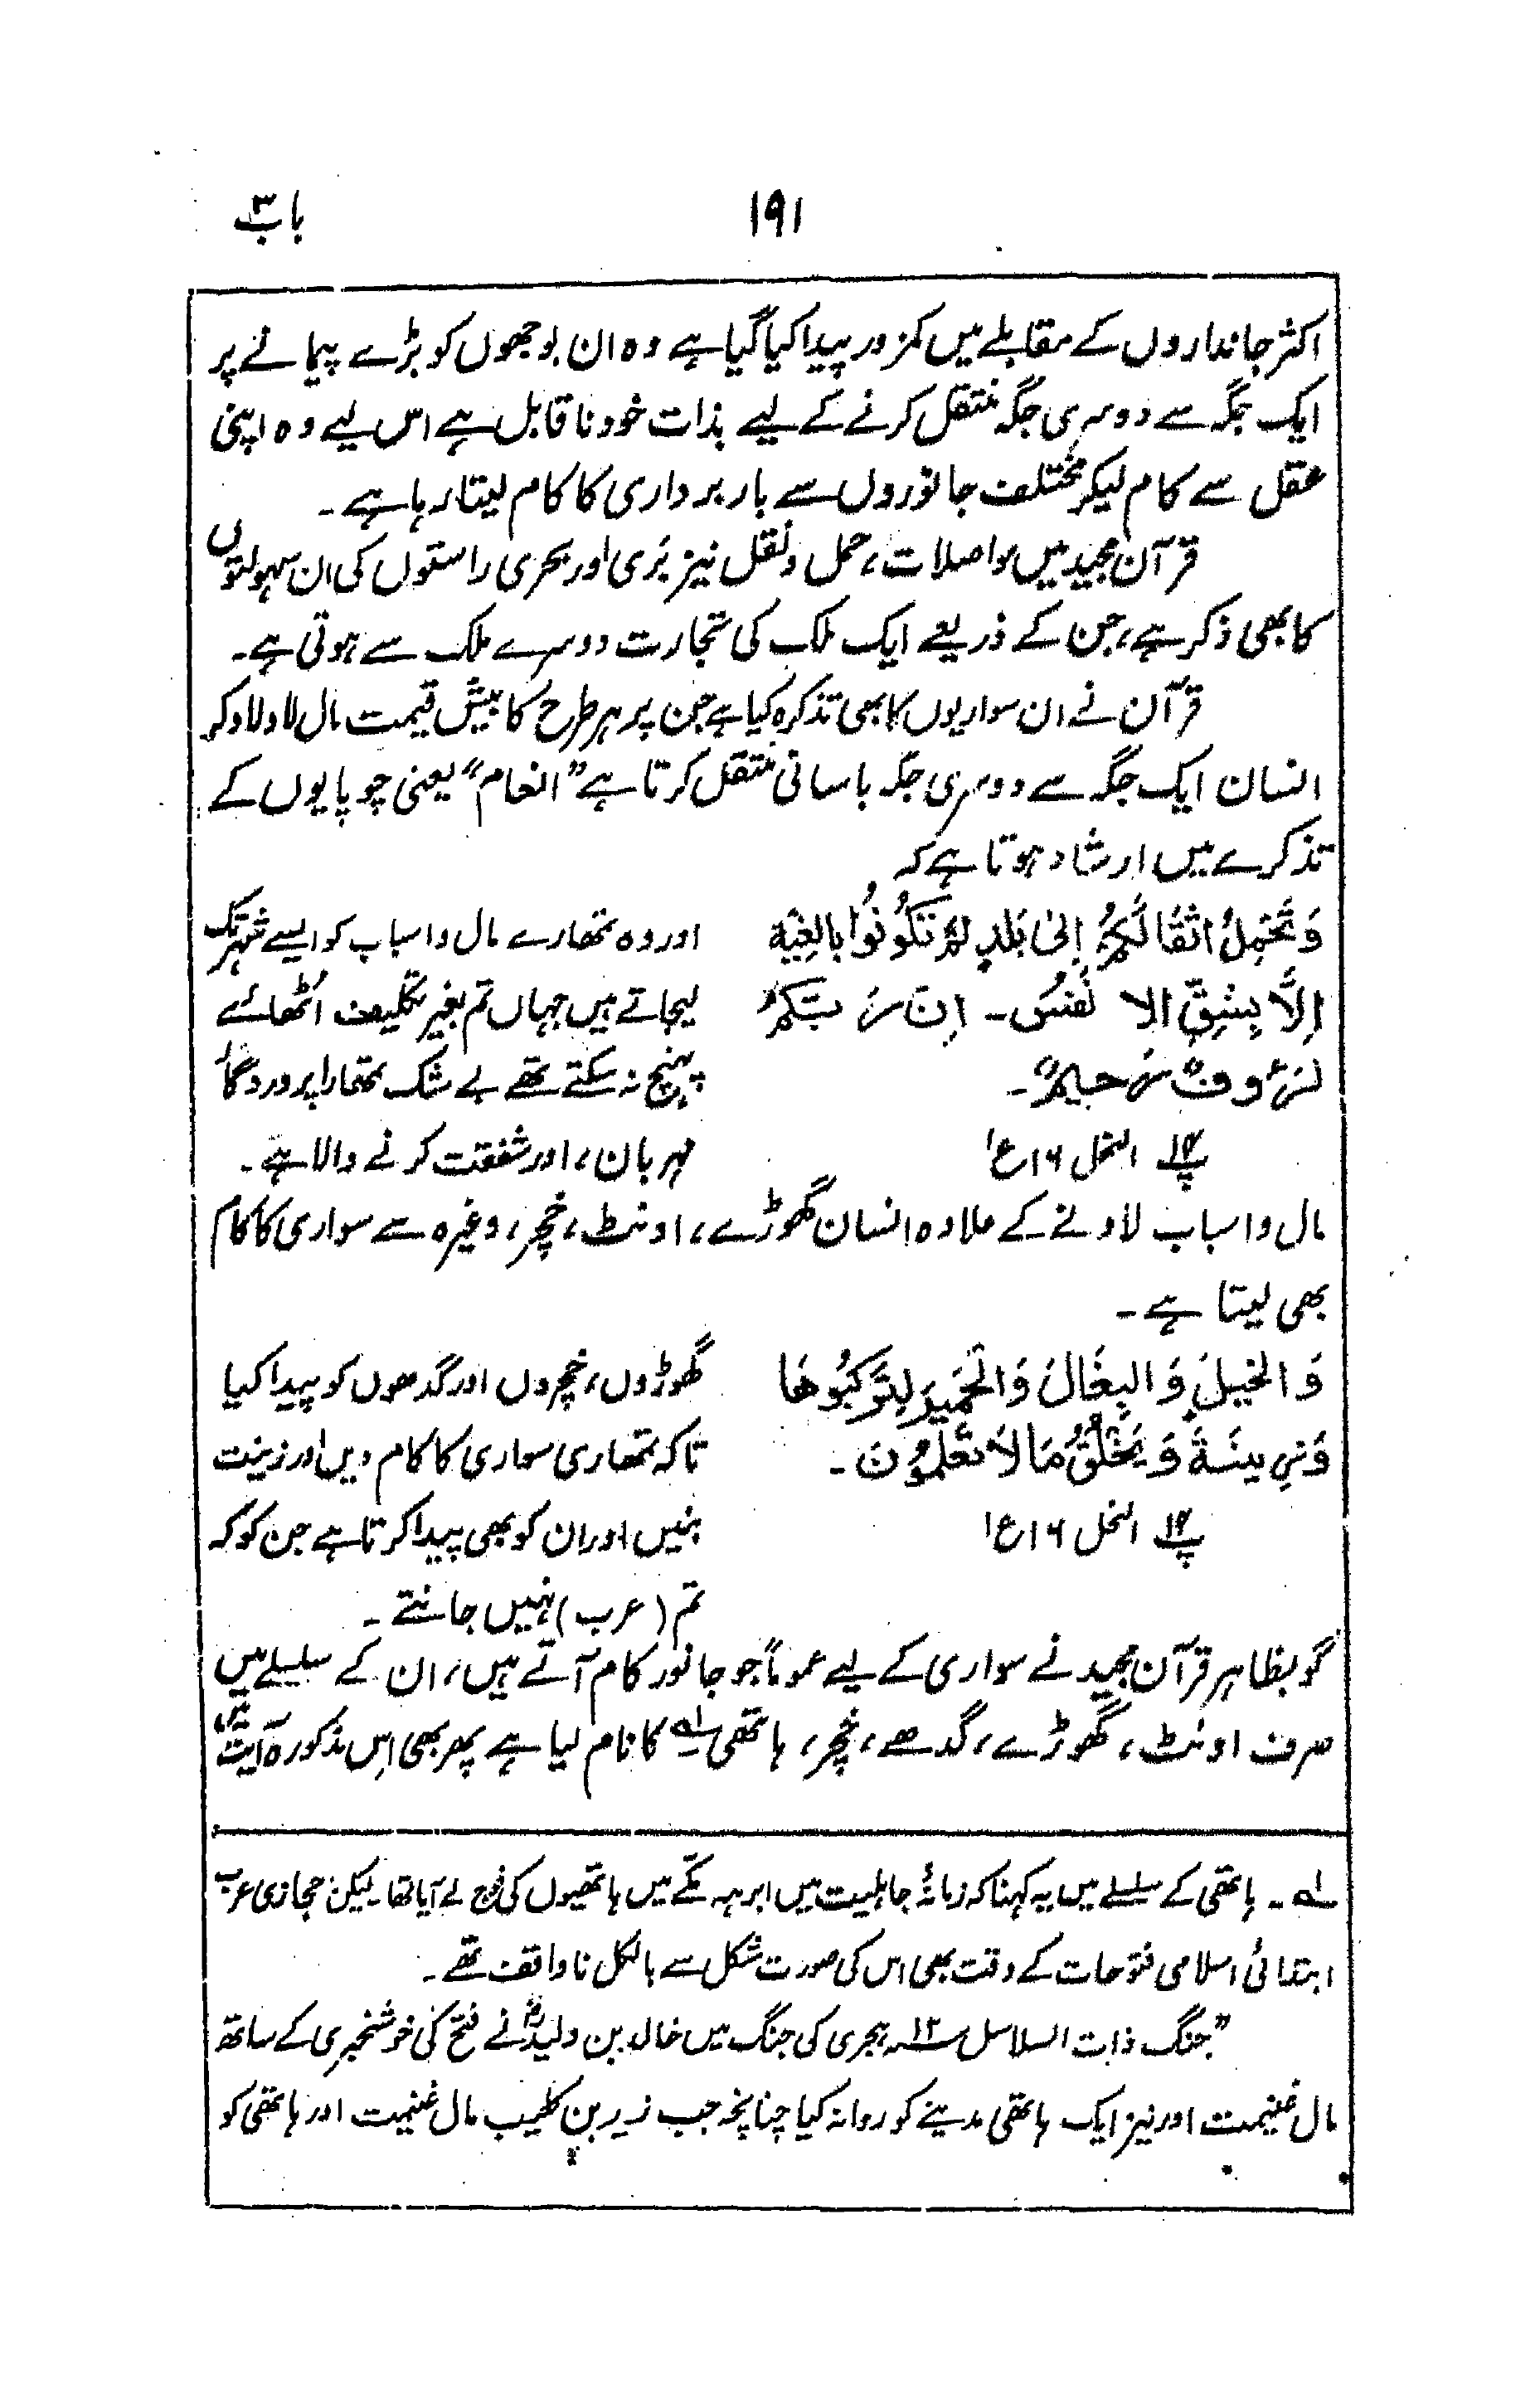 ۱۹۱
باب ۳
اکثر جانداروں کے مقابلے میں کمزور پیدا کیا گیا ہے وہ ان بوجھوں کو بڑے پیمانے پر
ایک جگہ سے دوسری جگہ منتقل کرنے کے لیے بذات خود ناقابل ہے اس لیے وہ اپنی
عقل سے کام لیکر مختلف جانوروں سے باربرداری کا کام لیتا رہا ہے۔
قرآن مجید میں مواصلات، حمل ونقل نیز بَری اور بحری راستوں کی ان سہولتوں
کا بھی ذکر ہے، جن کے ذریعے ایک ملک کی تجارت دوسرے ملک سے ہوتی ہے۔
قرآن نے ان سواریوں کا بھی تذکرہ کیا ہے جن پر ہر طرح کا بیش قیمت مال لاد لاد کر
انسان ایک جگہ سے دوسری جگہ باسانی منتقل کرتا ہے ”انعام“ یعنی چوپایوں کے
تذکرے میں ارشاد ہوتا ہے کہ
وَتَحْمِلُ اَثْقَالَكُمْ اِلىٰ بَلَدٍ لَمْ تَكُونُوْا بَالِغِيْهِ
اِلَّا بِشِقِّ الا نْفُسِ۔ اِنَّ رَبَّكُمْ
لَرَءوفٌ رَحيمٌ۔
پ۱۴ النحل ۱۶ ع۱
اور وہ تمھارے مال و اسباب کو ایسے شہر تک
لیجاتے ہیں جہاں تم بغیر تکلیف اُٹھائے
پہنچ نہ سکتے تھے بے شک تمھارا پروردگار
مہربان، اور شفقت کرنے والا ہے۔
مال و اسباب لادنے کے علاوہ انسان گھوڑے، اونٹ، خچر، وغیرہ سے سواری کا کام
بھی لیتا ہے۔
وَالخَيلَ وَالبِغَالَ وَالحَمِيرَ لِتَرْكَبُوهَا
وَزِينَةً وَيَخْلُقُ مَا لَا تَعْلَمُوْنَ۔
پ۱۴ النحل ۱۶ ع۱
گھوڑوں، خچروں اور گدھوں کو پیدا کیا
تاکہ تمھاری سواری کا کام دیں اور زینت
بنیں اور ان کو بھی پیدا کرتا ہے جن کو کہ
تم (عرب) نہیں جانتے۔
گو بظاہر قرآن مجید نے سواری کے لیے عموماً جو جانور کام آتے ہیں، ان کے سلسلے میں
صرف اونٹ، گھوڑے، گدھے، خچر، ہاتھی ؎۱ کا نام لیا ہے پھر بھی اِس مذکورہ آیت میں
؎۱۔ ہاتھی کے سلسلے میں یہ کہنا کہ زمانۂ جاہلیت میں ابرہہ مکے میں ہاتھیوں کی فوج لے آیا تھا۔ لیکن حجازی عرب
ابتدائی اسلامی فتوحات کے وقت بھی اس کی صورت شکل سے بالکل ناواقف تھے۔
”جنگ ذات السلاسل ۱۲ ہجری کی جنگ میں خالد بن ولیدؓ نے فتح کی خوشخبری کے ساتھ
مال غنیمت اور نیز ایک ہاتھی مدینے کو روانہ کیا چنانچہ جب زیر بن کلیب مال غنیمت اور ہاتھی کو